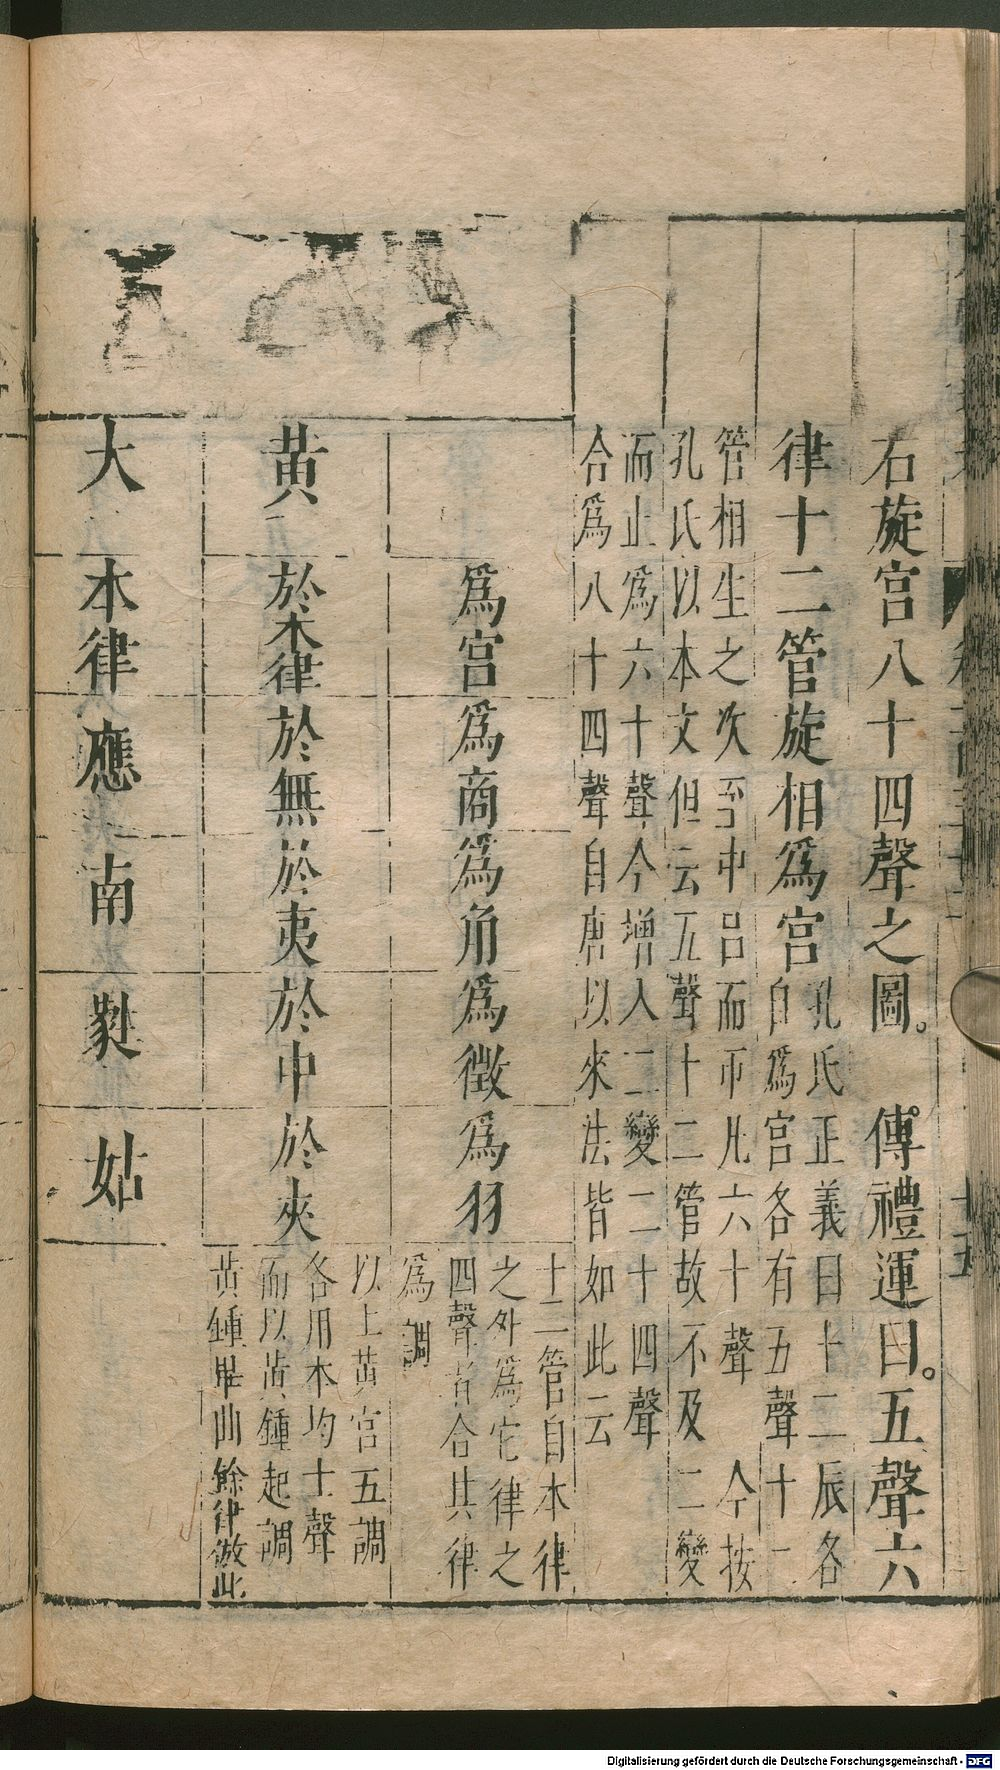 右旋宮八十四聲之圖。　傳禮運曰。五聲六
律十二管旋相爲宮
孔氏正義曰十二辰各
自爲宮各有五聲十二
管相生之次至中呂而帀凡六十聲　今按
孔氏以本文但云五聲十二管故不及二變
而止爲六十聲今增入二變二十四聲
合爲八十四聲自唐以來法皆如此云
爲宮爲商爲角爲徵爲羽
十二管自本律
之外爲它律之
四聲者合其律
爲調
黄
於本律於無於夷於中於夾
以上黄宮五調
各用本均十聲
而以黄鍾起調
黄鍾畢曲餘律倣此
大
本律應南蕤姑
十五
Digitalisierung gefördert durch die Deutsche Forschungsgemeinschaft - DFG